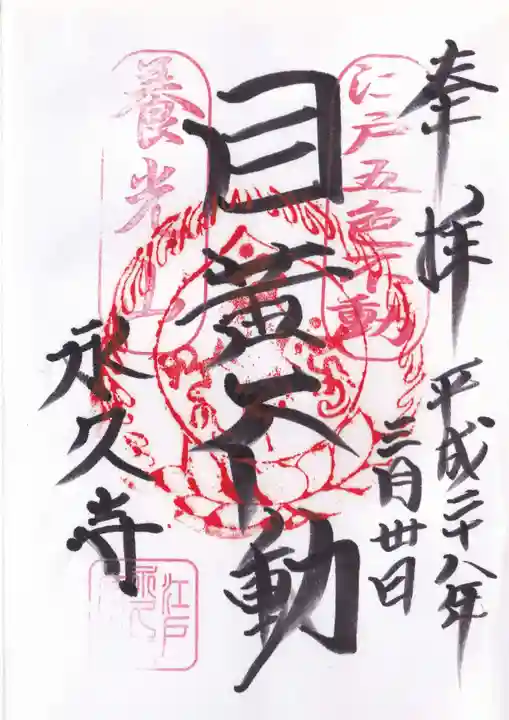 奉拝
平成二十八年
三月卅日
江戸五色不動
目黄不動
養光山
永久寺
江戸